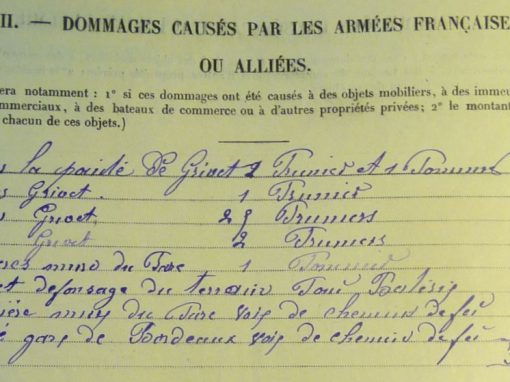 II. — DOMMAGES CAUSÉS PAR LES ARMÉES FRANÇAISE
OU ALLIÉES.
era notamment : 1° si ces dommages ont été causés à des objets mobiliers, à des immeu
mmerciaux, à des bateaux de commerce ou à d'autres propriétés privées; 2° le montant
chacun de ces objets.)
la de Grivet 2 Prunier et 1 Pommier
Grivet 1 Prunier
Grivet 29 Pruniers
Grivet 2 Pruniers
murs du Parc 1 Pommier
et defonsage du terrain
murs du Parc voie de chemins de feu
gare de Bordeaux voie de chemins de feu